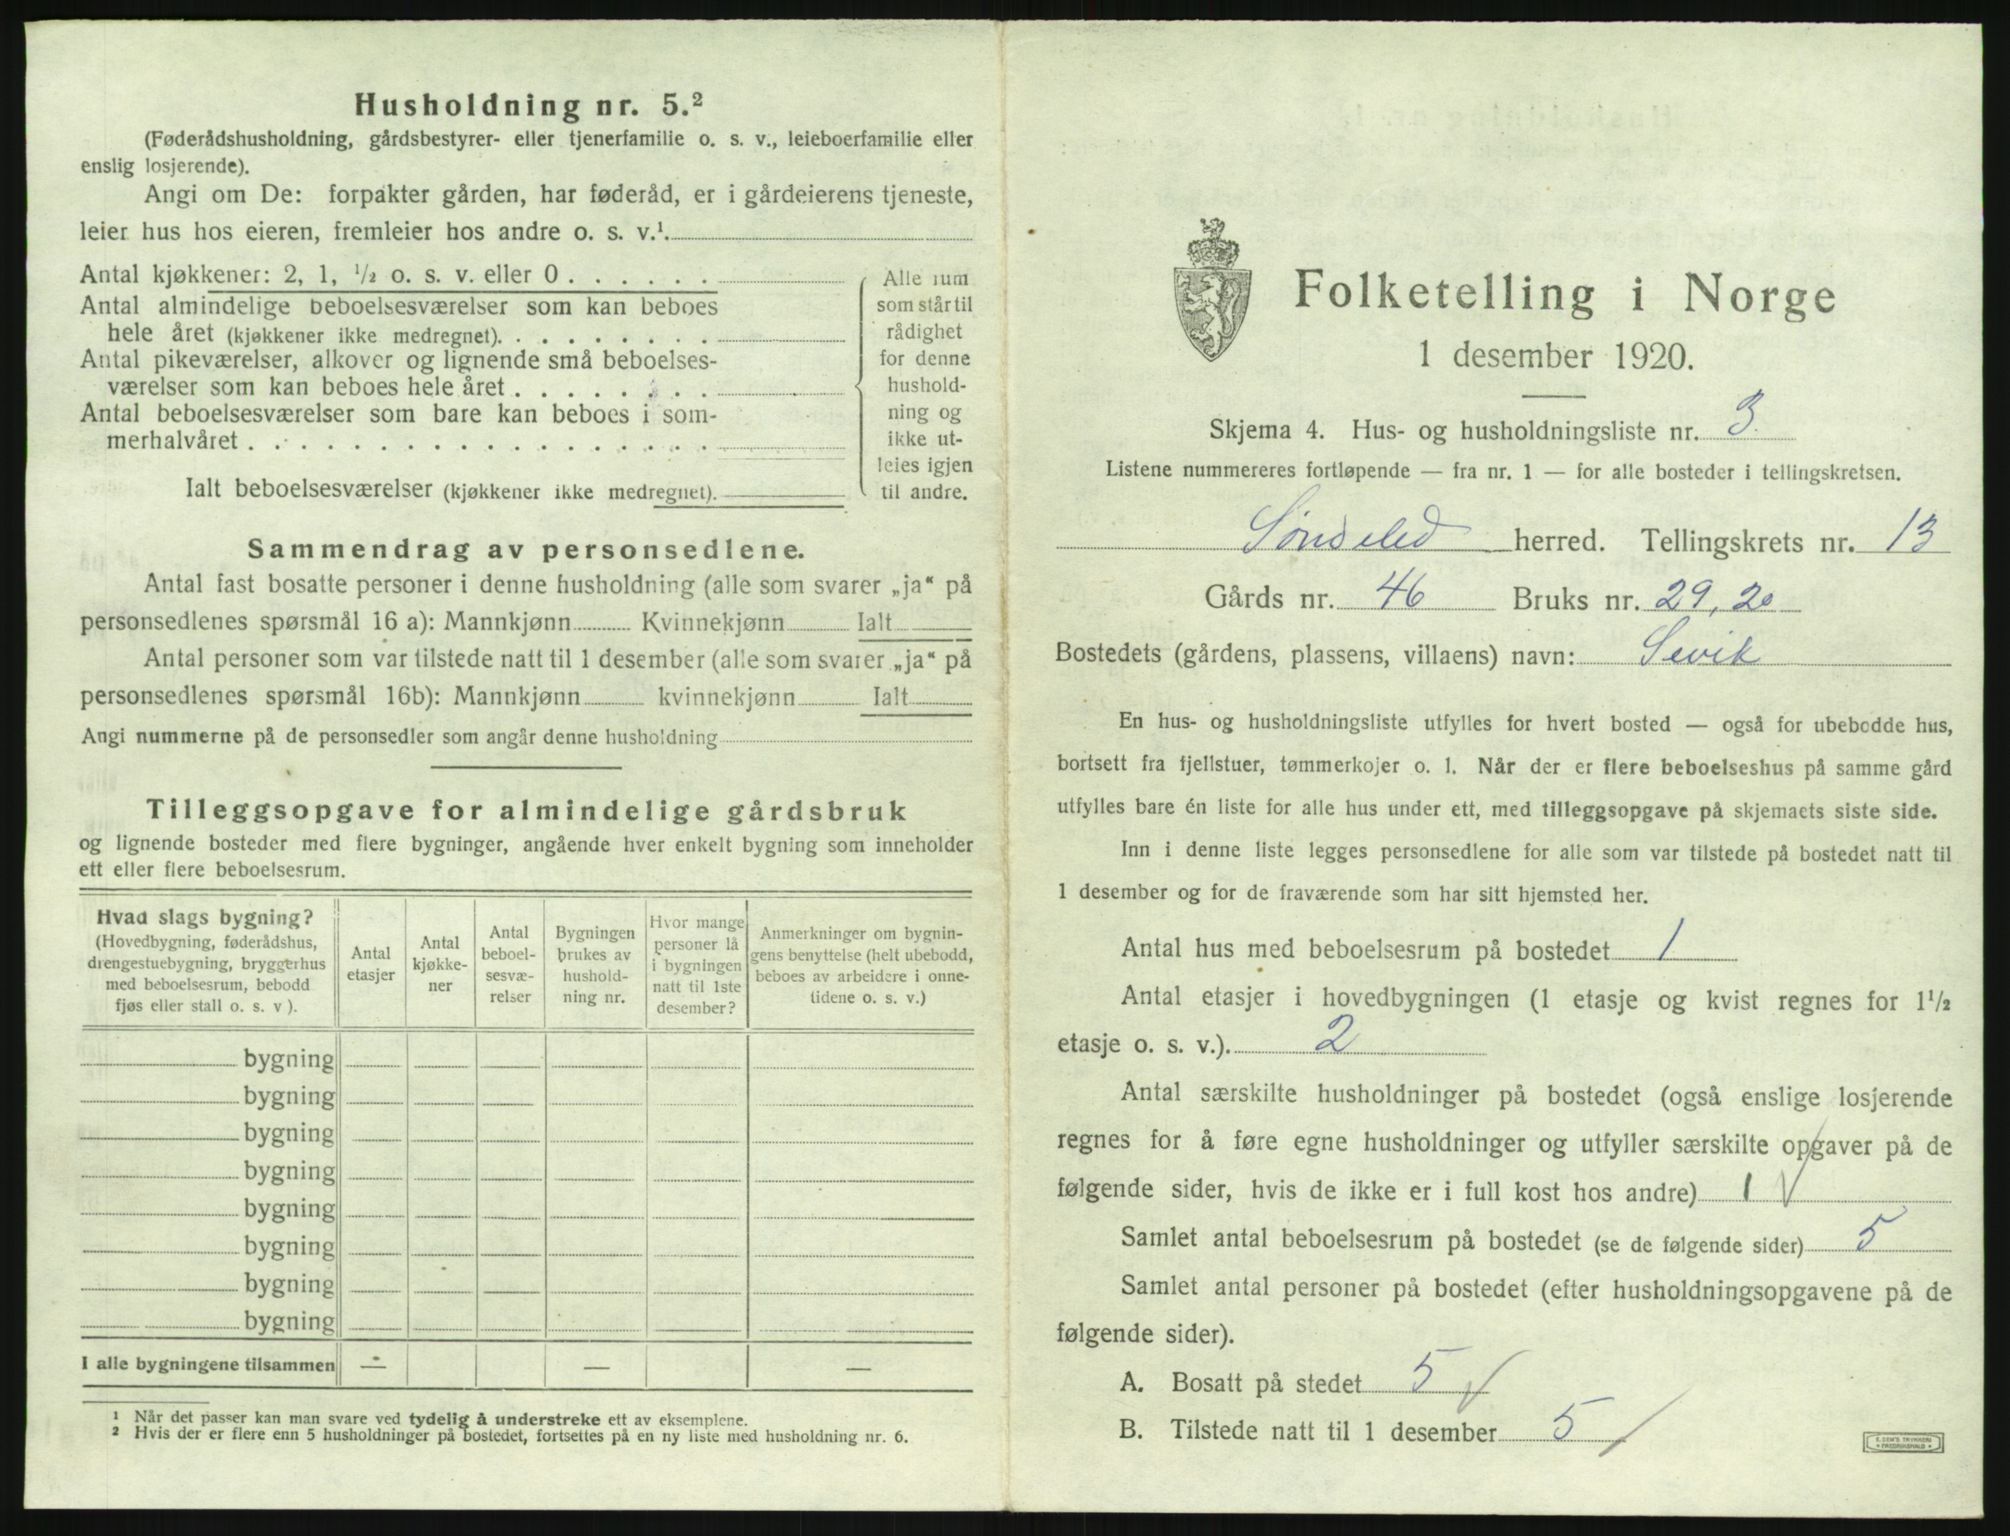 Husholdning nr. 5.²
(Føderådshusholdning, gårdsbestyrer- eller tjenerfamilie o. s. v., leieboerfamilie eller
enslig losjerende).
Angi om De: forpakter gården, har føderåd, er i gårdeierens tjeneste,
leier hus hos eieren, fremleier hos andre o. s. v.¹.
Antal kjøkkener: 2, 1, ½ o. s. v. eller 0 . . . . . .
Antal almindelige beboelsesværelser som kan beboes
hele året (kjøkkener ikke medregnet). . . . . . . . .
Antal pikeværelser, alkover og lignende små beboelses-
værelser som kan beboes hele året . . . . . . . .
Antal beboelsesværelser som bare kan beboes i som-
merhalvåret . . . . . . . . . . . . . . . . . .
Ialt beboelsesværelser (kjøkkener ikke medregnet).
Alle rum
som står til
rådighet
for denne
hushold-
ning og
ikke ut-
leies igjen
til andre.
Sammendrag av personsedlene.
Antal fast bosatte personer i denne husholdning (alle som svarer „ja“ på
personsedlenes spørsmål 16 a): Mannkjønn Kvinnekjønn Ialt
Antal personer som var tilstede natt til 1 desember (alle som svarer „ja“ på
personsedlenes spørsmål 16b): Mannkjønn kvinnekjønn Ialt
Angi nummerne på de personsedler som angår denne husholdning
Tilleggsopgave for almindelige gårdsbruk
og lignende bosteder med flere bygninger, angående hver enkelt bygning som inneholder
ett eller flere beboelsesrum.
Hvad slags bygning?
(Hovedbygning, føderådshus,
drengestuebygning, bryggerhus
med beboelsesrum, bebodd
fjøs eller stall o. s. v ).
Antal
etasjer
Antal
kjøkke-
ner
Antal
beboel-
sesvæ-
relser
Bygningen
brukes av
hushold-
ning nr.
Hvor mange
personer lå
i bygningen
natt til 1ste
desember?
Anmerkninger om bygnin-
gens benyttelse (helt ubebodd,
beboes av arbeidere i onne-
tidene o. s. v.)
bygning
bygning
bygning
bygning
bygning
bygning
bygning
bygning
I alle bygningene tilsammen — — —
¹ Når det passer kan man svare ved tydelig å understreke ett av eksemplene.
² Hvis der er flere enn 5 husholdninger på bostedet, fortsettes på en ny liste med husholdning nr. 6.
Folketelling i Norge
1 desember 1920.
Skjema 4. Hus- og husholdningsliste nr. 3
Listene nummereres fortløpende — fra nr. 1 — for alle bosteder i tellingskretsen.
Søndeled herred. Tellingskrets nr. 13
Gårds nr. 46 Bruks nr. 29, 20
Bostedets (gårdens, plassens, villaens) navn: Sevik
En hus- og husholdningsliste utfylles for hvert bosted — også for ubebodde hus,
bortsett fra fjellstuer, tømmerkojer o. l. Når der er flere beboelseshus på samme gård
utfylles bare én liste for alle hus under ett, med tilleggsopgave på skjemaets siste side.
Inn i denne liste legges personsedlene for alle som var tilstede på bostedet natt til
1 desember og for de fraværende som har sitt hjemsted her.
Antal hus med beboelsesrum på bostedet 1
Antal etasjer i hovedbygningen (1 etasje og kvist regnes for 1½
etasje o. s. v.). 2
Antal særskilte husholdninger på bostedet (også enslige losjerende
regnes for å føre egne husholdninger og utfyller særskilte opgaver på de
følgende sider, hvis de ikke er i full kost hos andre) 1
Samlet antal beboelsesrum på bostedet (se de følgende sider) 5
Samlet antal personer på bostedet (efter husholdningsopgavene på de
følgende sider).
A. Bosatt på stedet 5
B. Tilstede natt til 1 desember 5
E. SEM'S TRYKKERI
FREDRIKSHALD